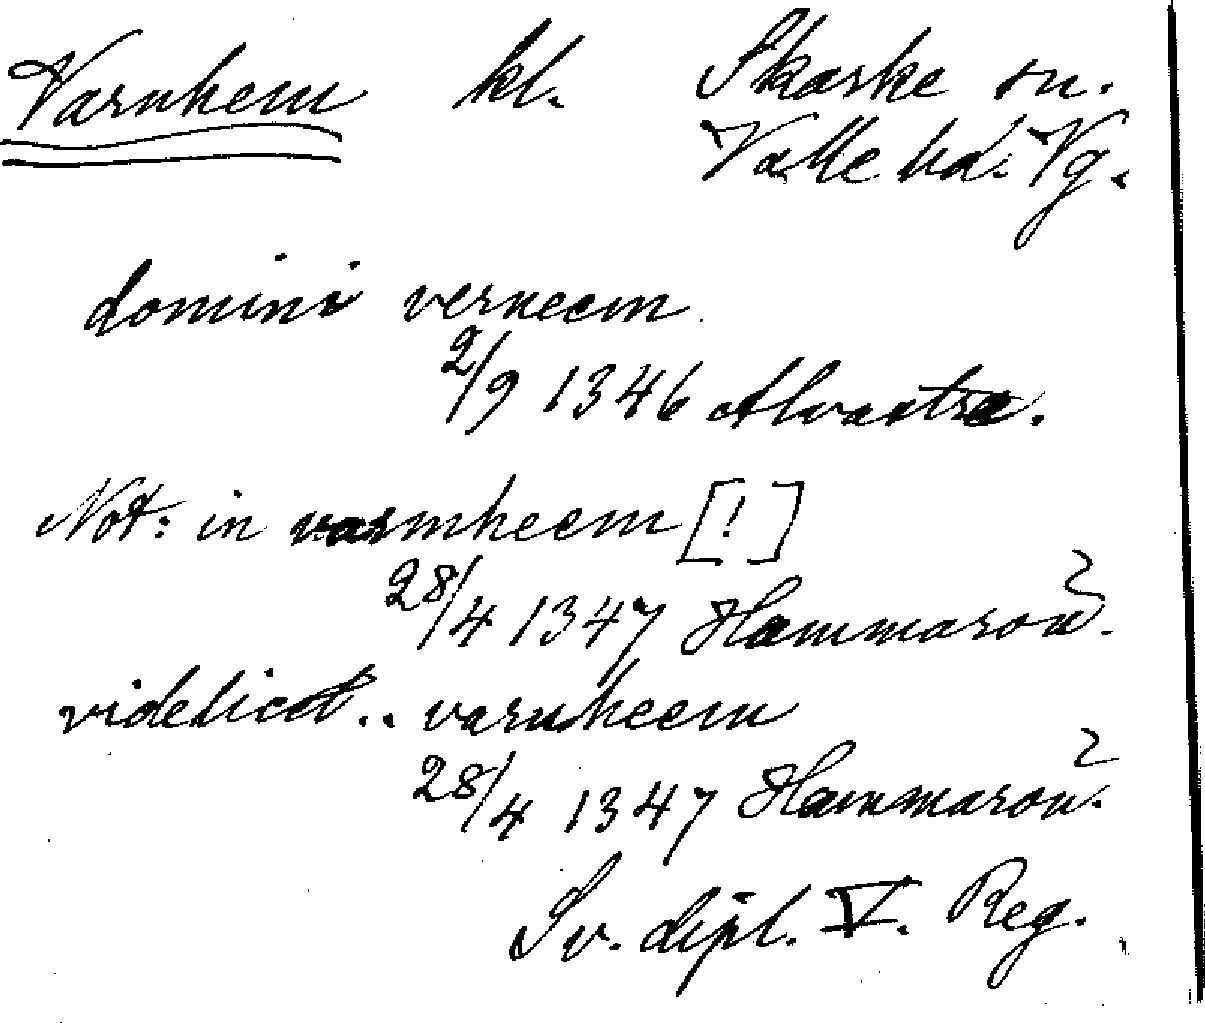 Varnhem kl. Skarke sn.
Valle hd. Vg.
domini verneem
2/9 1346 Alvastra.
Not: in varmheem [!]
28/4 1347 Hammarön?
videlicet.. varnheem
28/4 1347 Hammarön?
Sv. dipl. V. Reg.